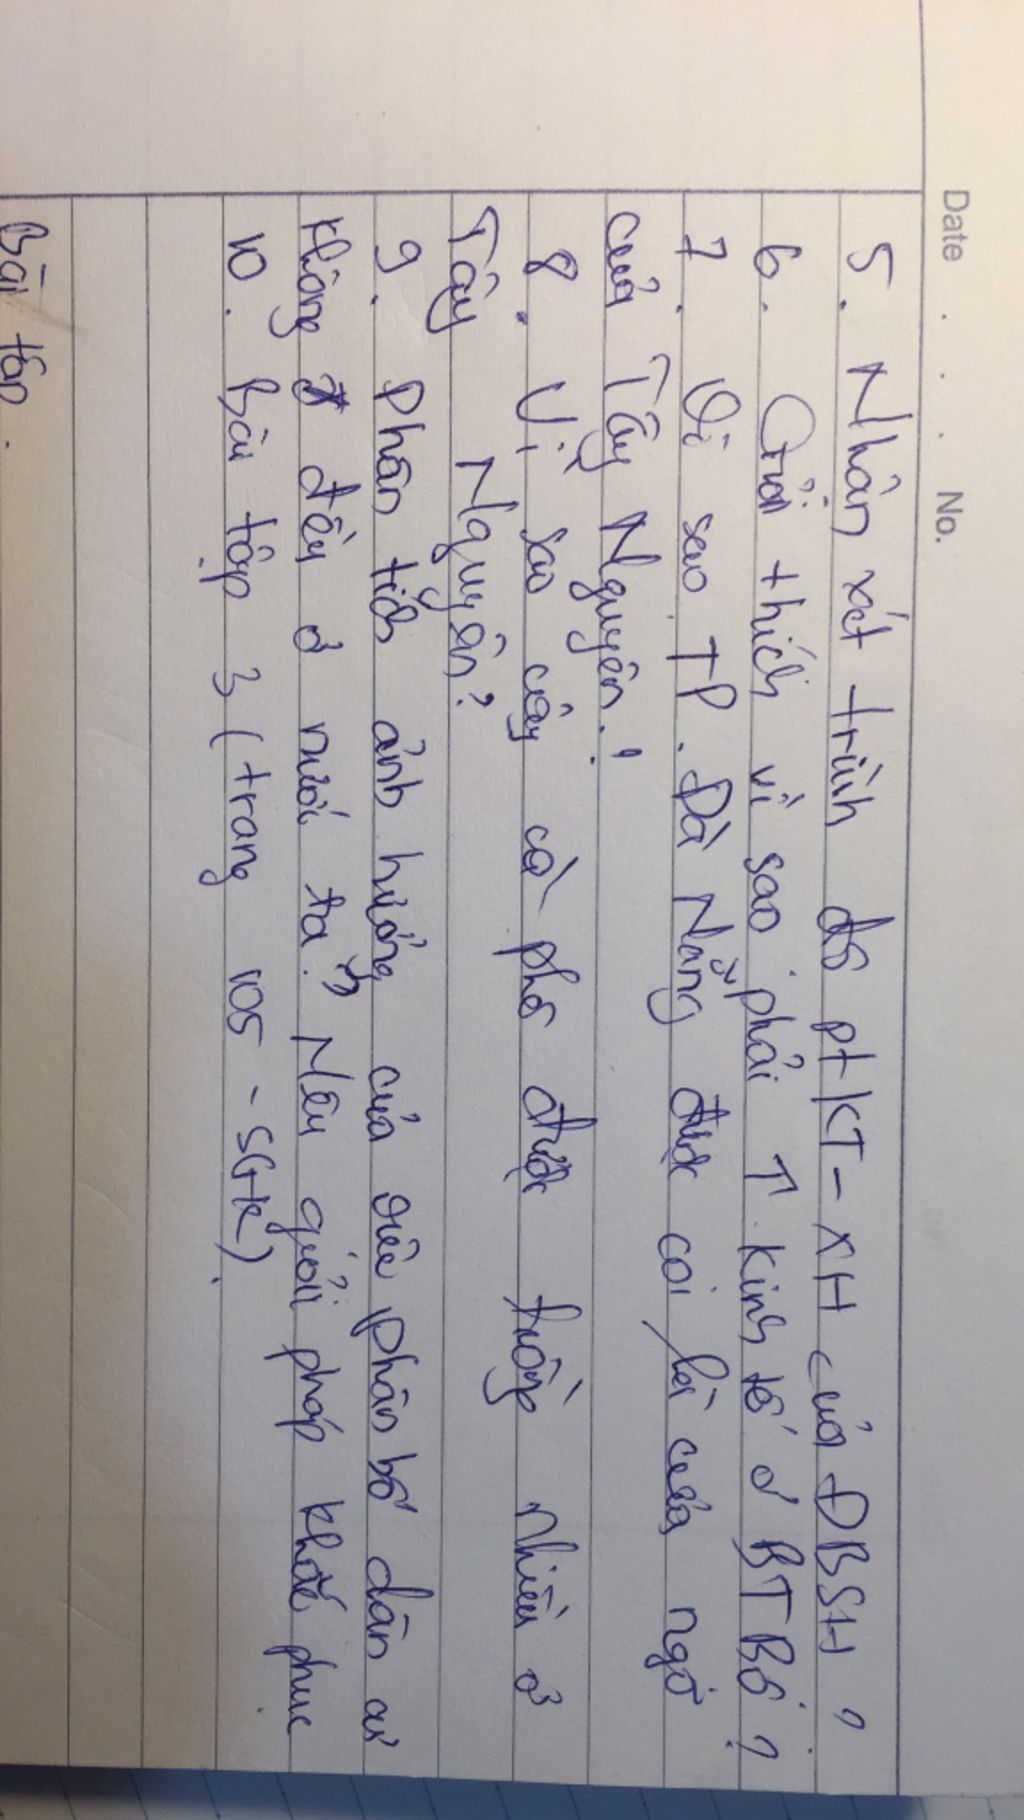 Date . . . No.
5. Nhận xét trình độ ptKT - XH của ĐBSH ?
6. Giải thích vì sao phải ↑ kinh tế ở BTBộ ?
7. Vì sao TP. Đà Nẵng được coi là cửa ngõ
của Tây Nguyên.!
8. Vì sao cây cà phê được trồng nhiều ở
Tây Nguyên?
9. Phân tích ảnh hưởng của việc phân bố dân cư
không đ đều ở nước ta? Nêu giải pháp khắc phục
10. Bài tập 3 (trang 105 - SGK).
Bài tập.